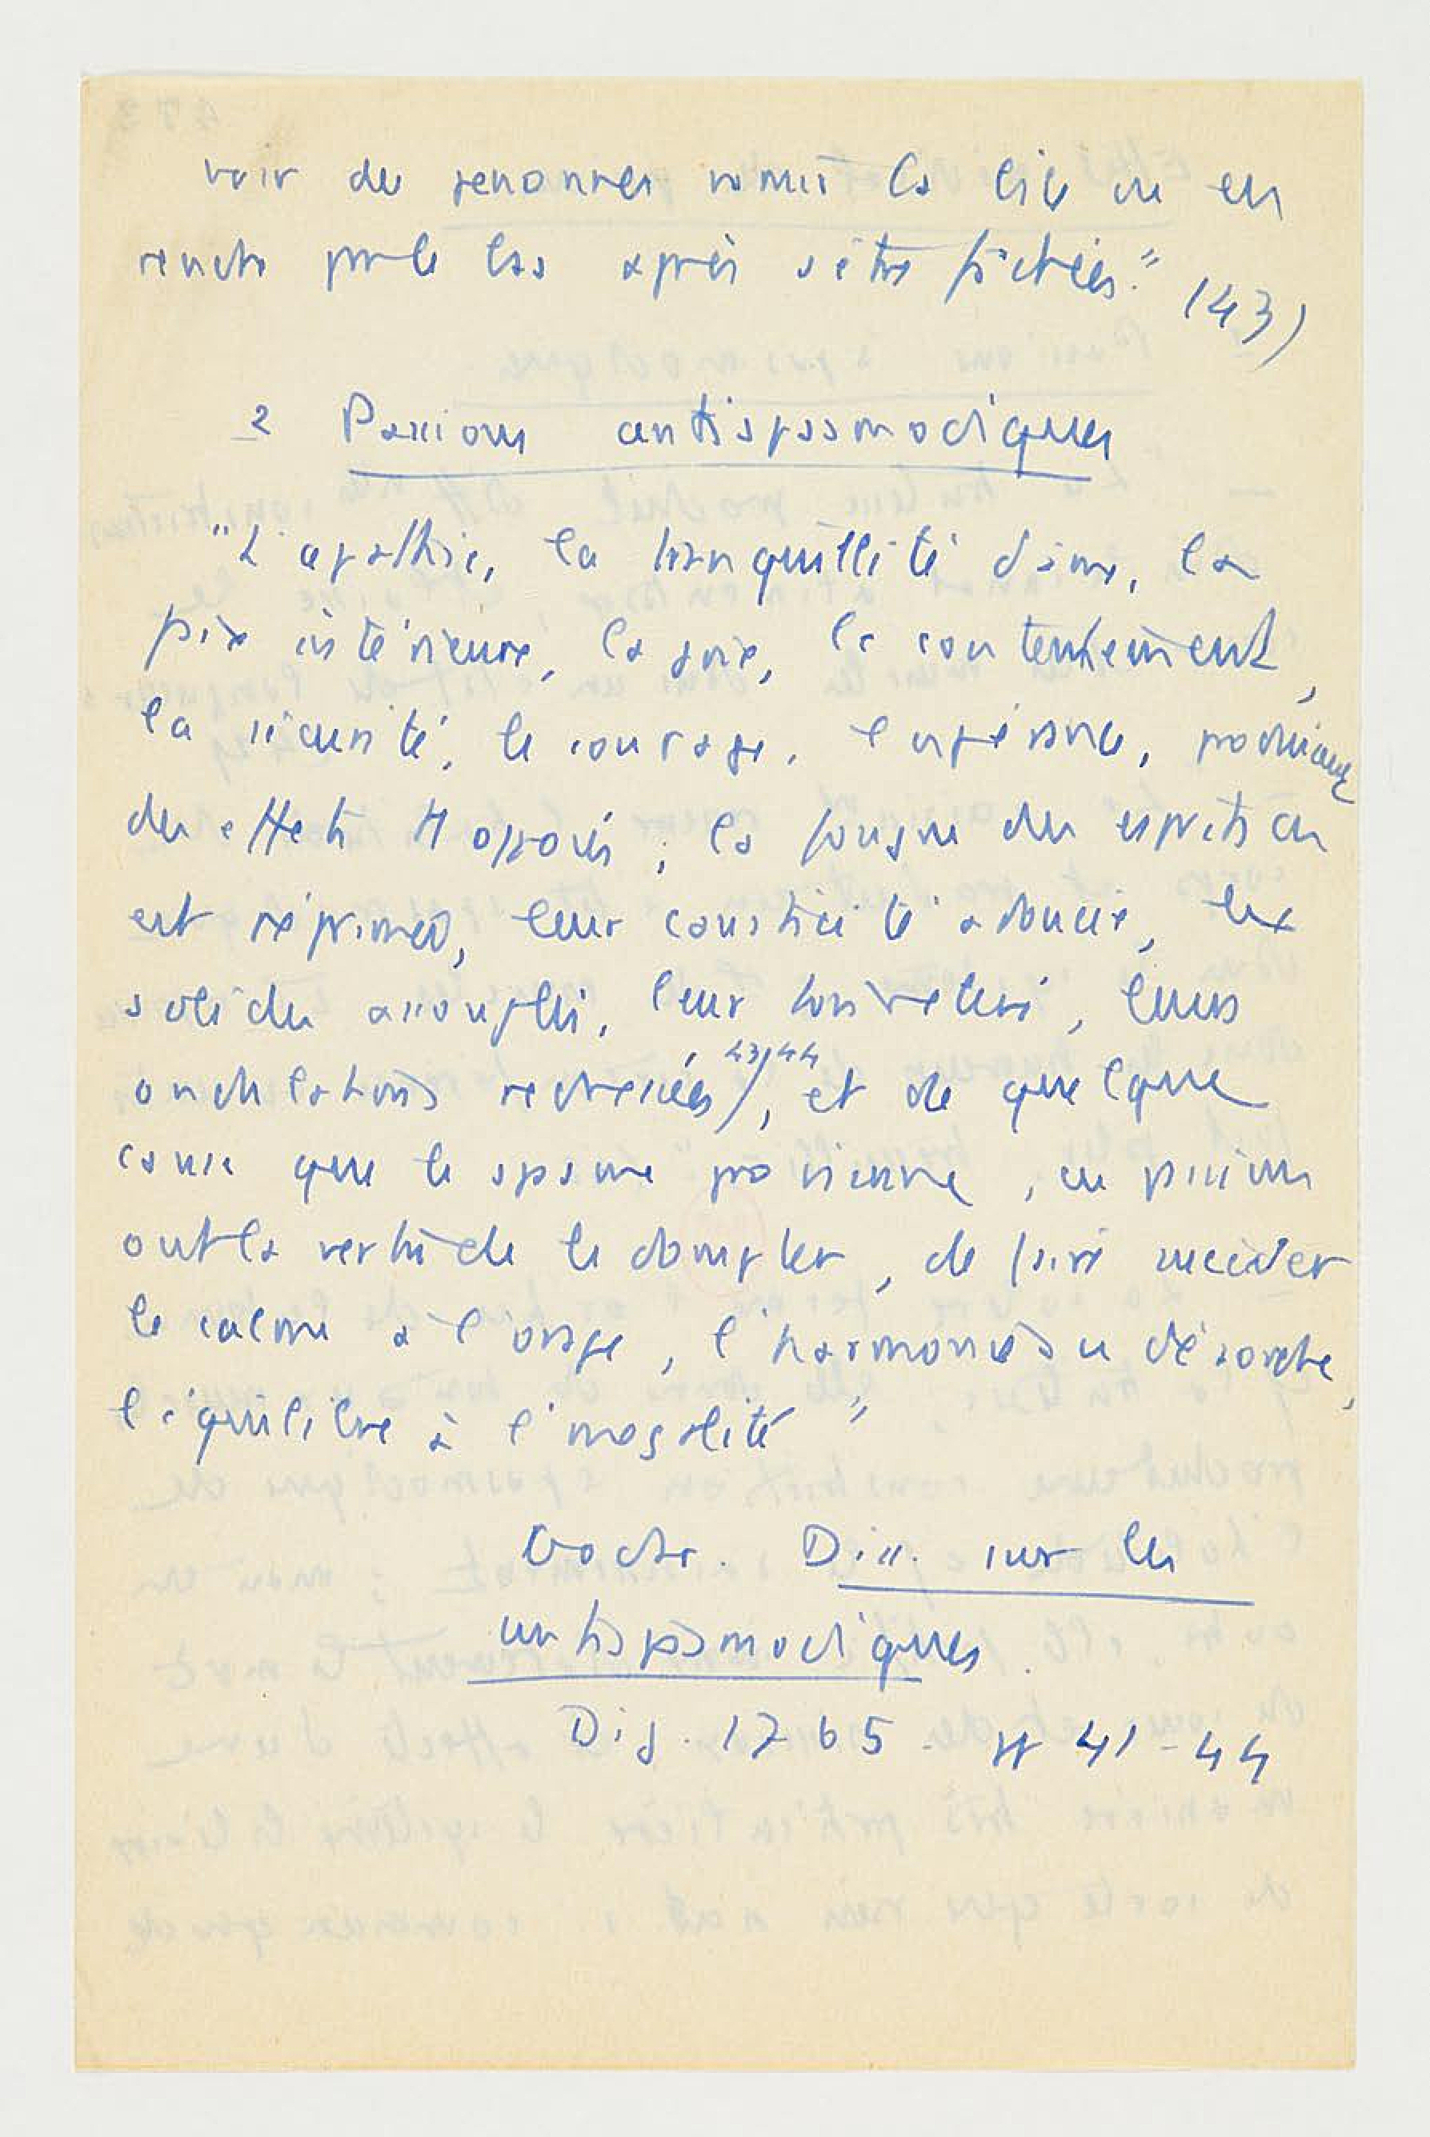 voir des personnes vomir la bile ou en
rendre par le bas après s'être fâchées." (43)
2 Passions antispasmodiques
"L'apathie, la tranquillité d'âme, la
paix intérieure, la joie, le contentement,
la sécurité, le courage, l'espérance, produisent
des effets tt opposés ; la fougue des esprits an
est réprimée, leur causticité adoucie, les
solides assouplis, leur ton relevé, leurs
ondulations redressées /, 43/44 et de quelque
cause que le spasme provienne, ces passions
ont la vertu de le dompter, de faire succéder
le calme à l'orage, l'harmonie au désordre,
l'équilibre à l'inégalité"
Diss. sur les
antispasmodiques
Dij. 1765. pp 41-44